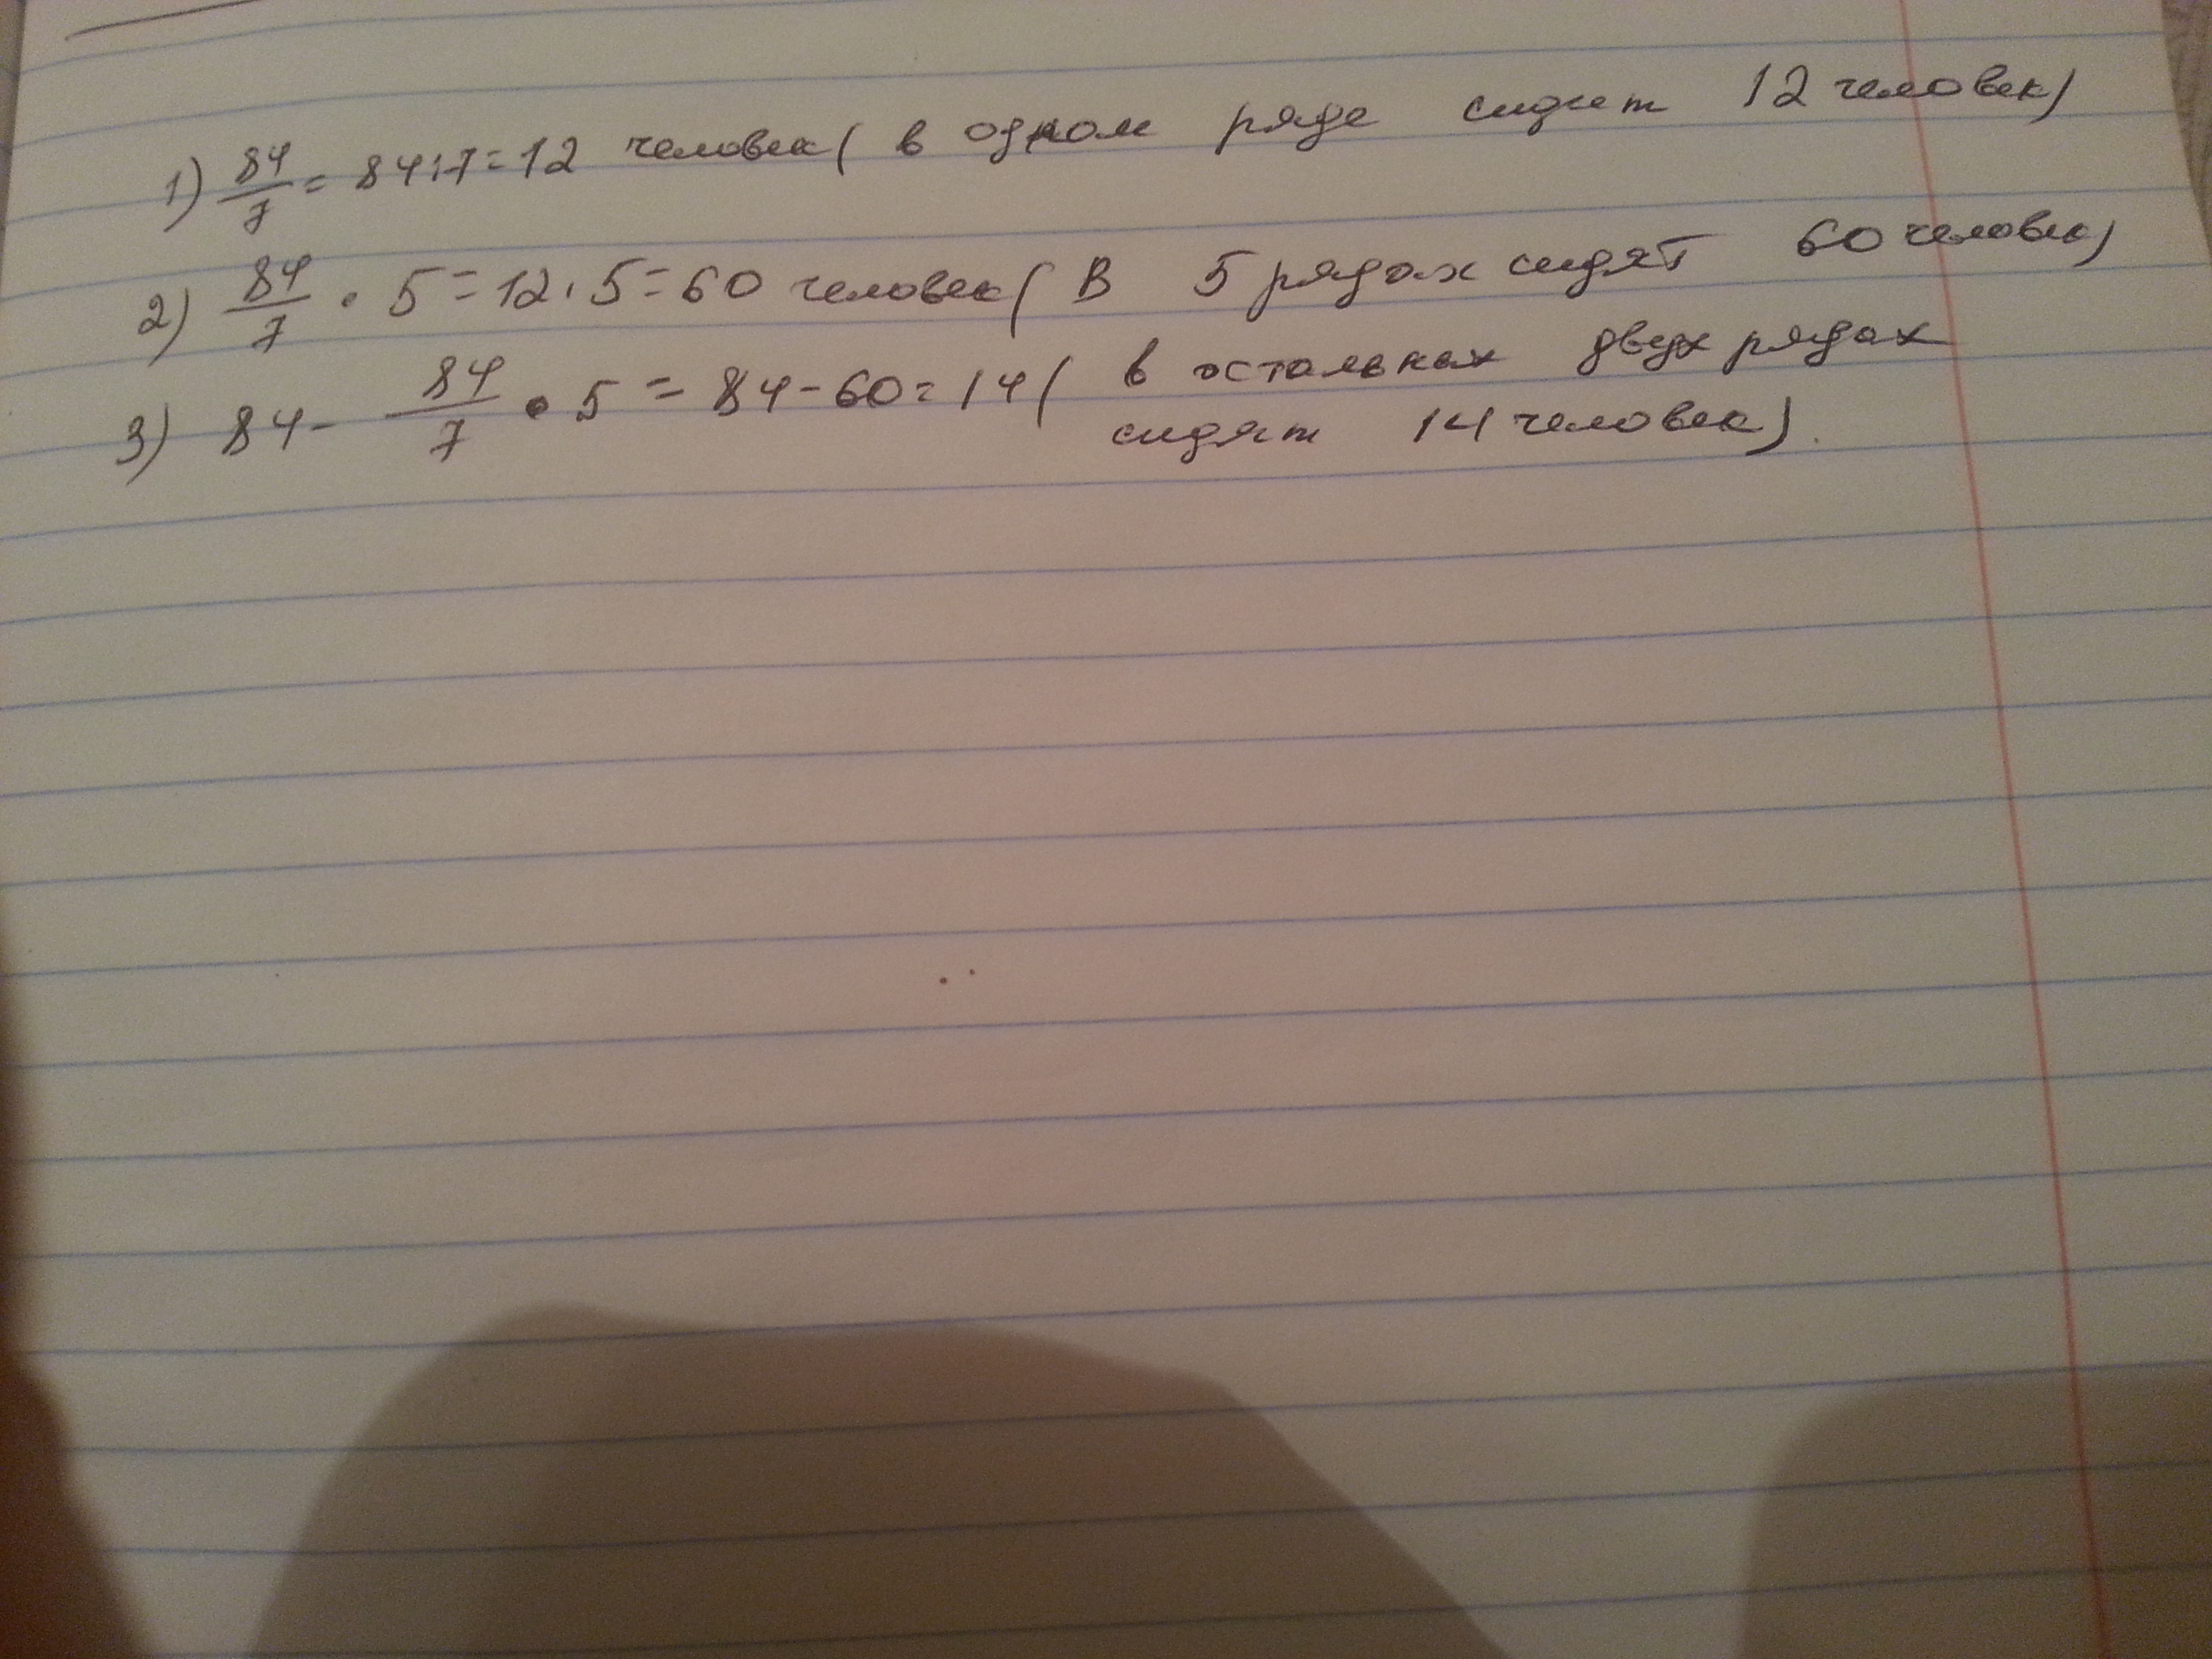 1) 84/7 = 84:7=12 человек ( в одном ряде сидит 12 человек)
2) 84/7 · 5=12·5=60 человек ( В 5 рядах сидят 60 человек)
3) 84- 84/7 · 5 = 84-60=14 ( в остальных двух рядах
сидят 14 человек).